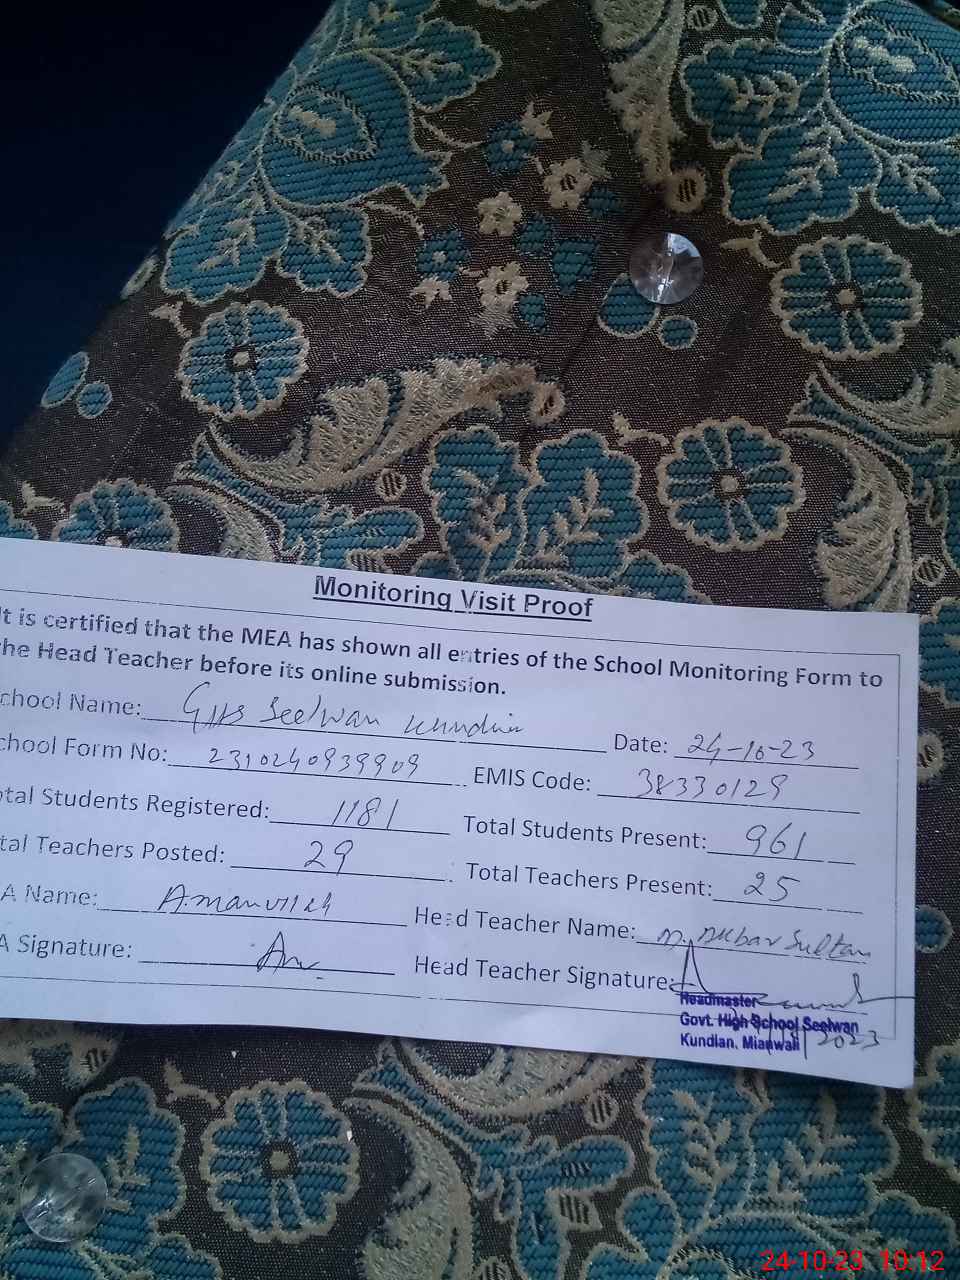 Monitoring Visit Proof
It is certified that the MEA has shown all entries of the School Monitoring Form to
the Head Teacher before its online submission.
chool Name: GHS Seelwan Kundian Date: 24-10-23
chool Form No: 2310240939909 EMIS Code: 38330129
otal Students Registered: 1181 Total Students Present: 961
tal Teachers Posted: 29 Total Teachers Present: 25
A Name: Head Teacher Name: M. Sultan
A Signature: Head Teacher Signature:
Headmaster
Govt. High School Seelwan
Kundian. Mianwali 2023
24-10-23 10:12